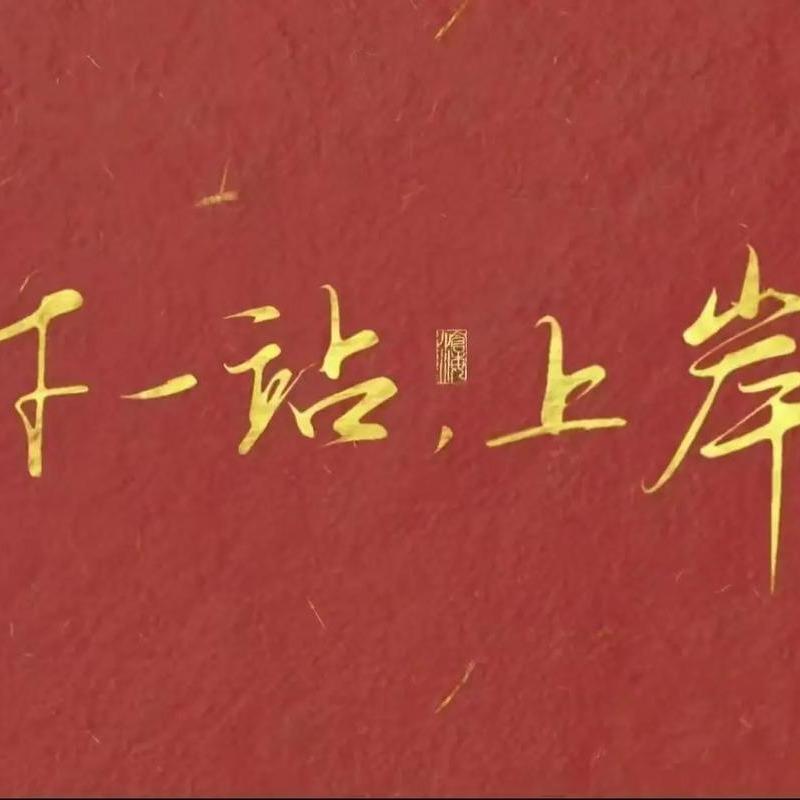 下一站，上岸